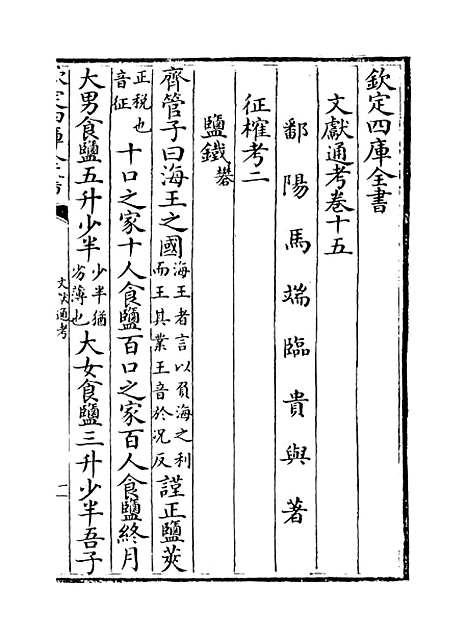 欽定四庫全書
文獻通考卷十五
鄱陽馬端臨貴與著
征榷考二
鹽鐵礬
齊管子曰海王之國海王者言以負海之利而王其業王音於況反謹正鹽莢
正稅也音征十口之家十人食鹽百口之家百人食鹽終月
大男食鹽五升少半少半猶劣薄也大女食鹽三升少半吾子
欽定四庫全書
文獻通考